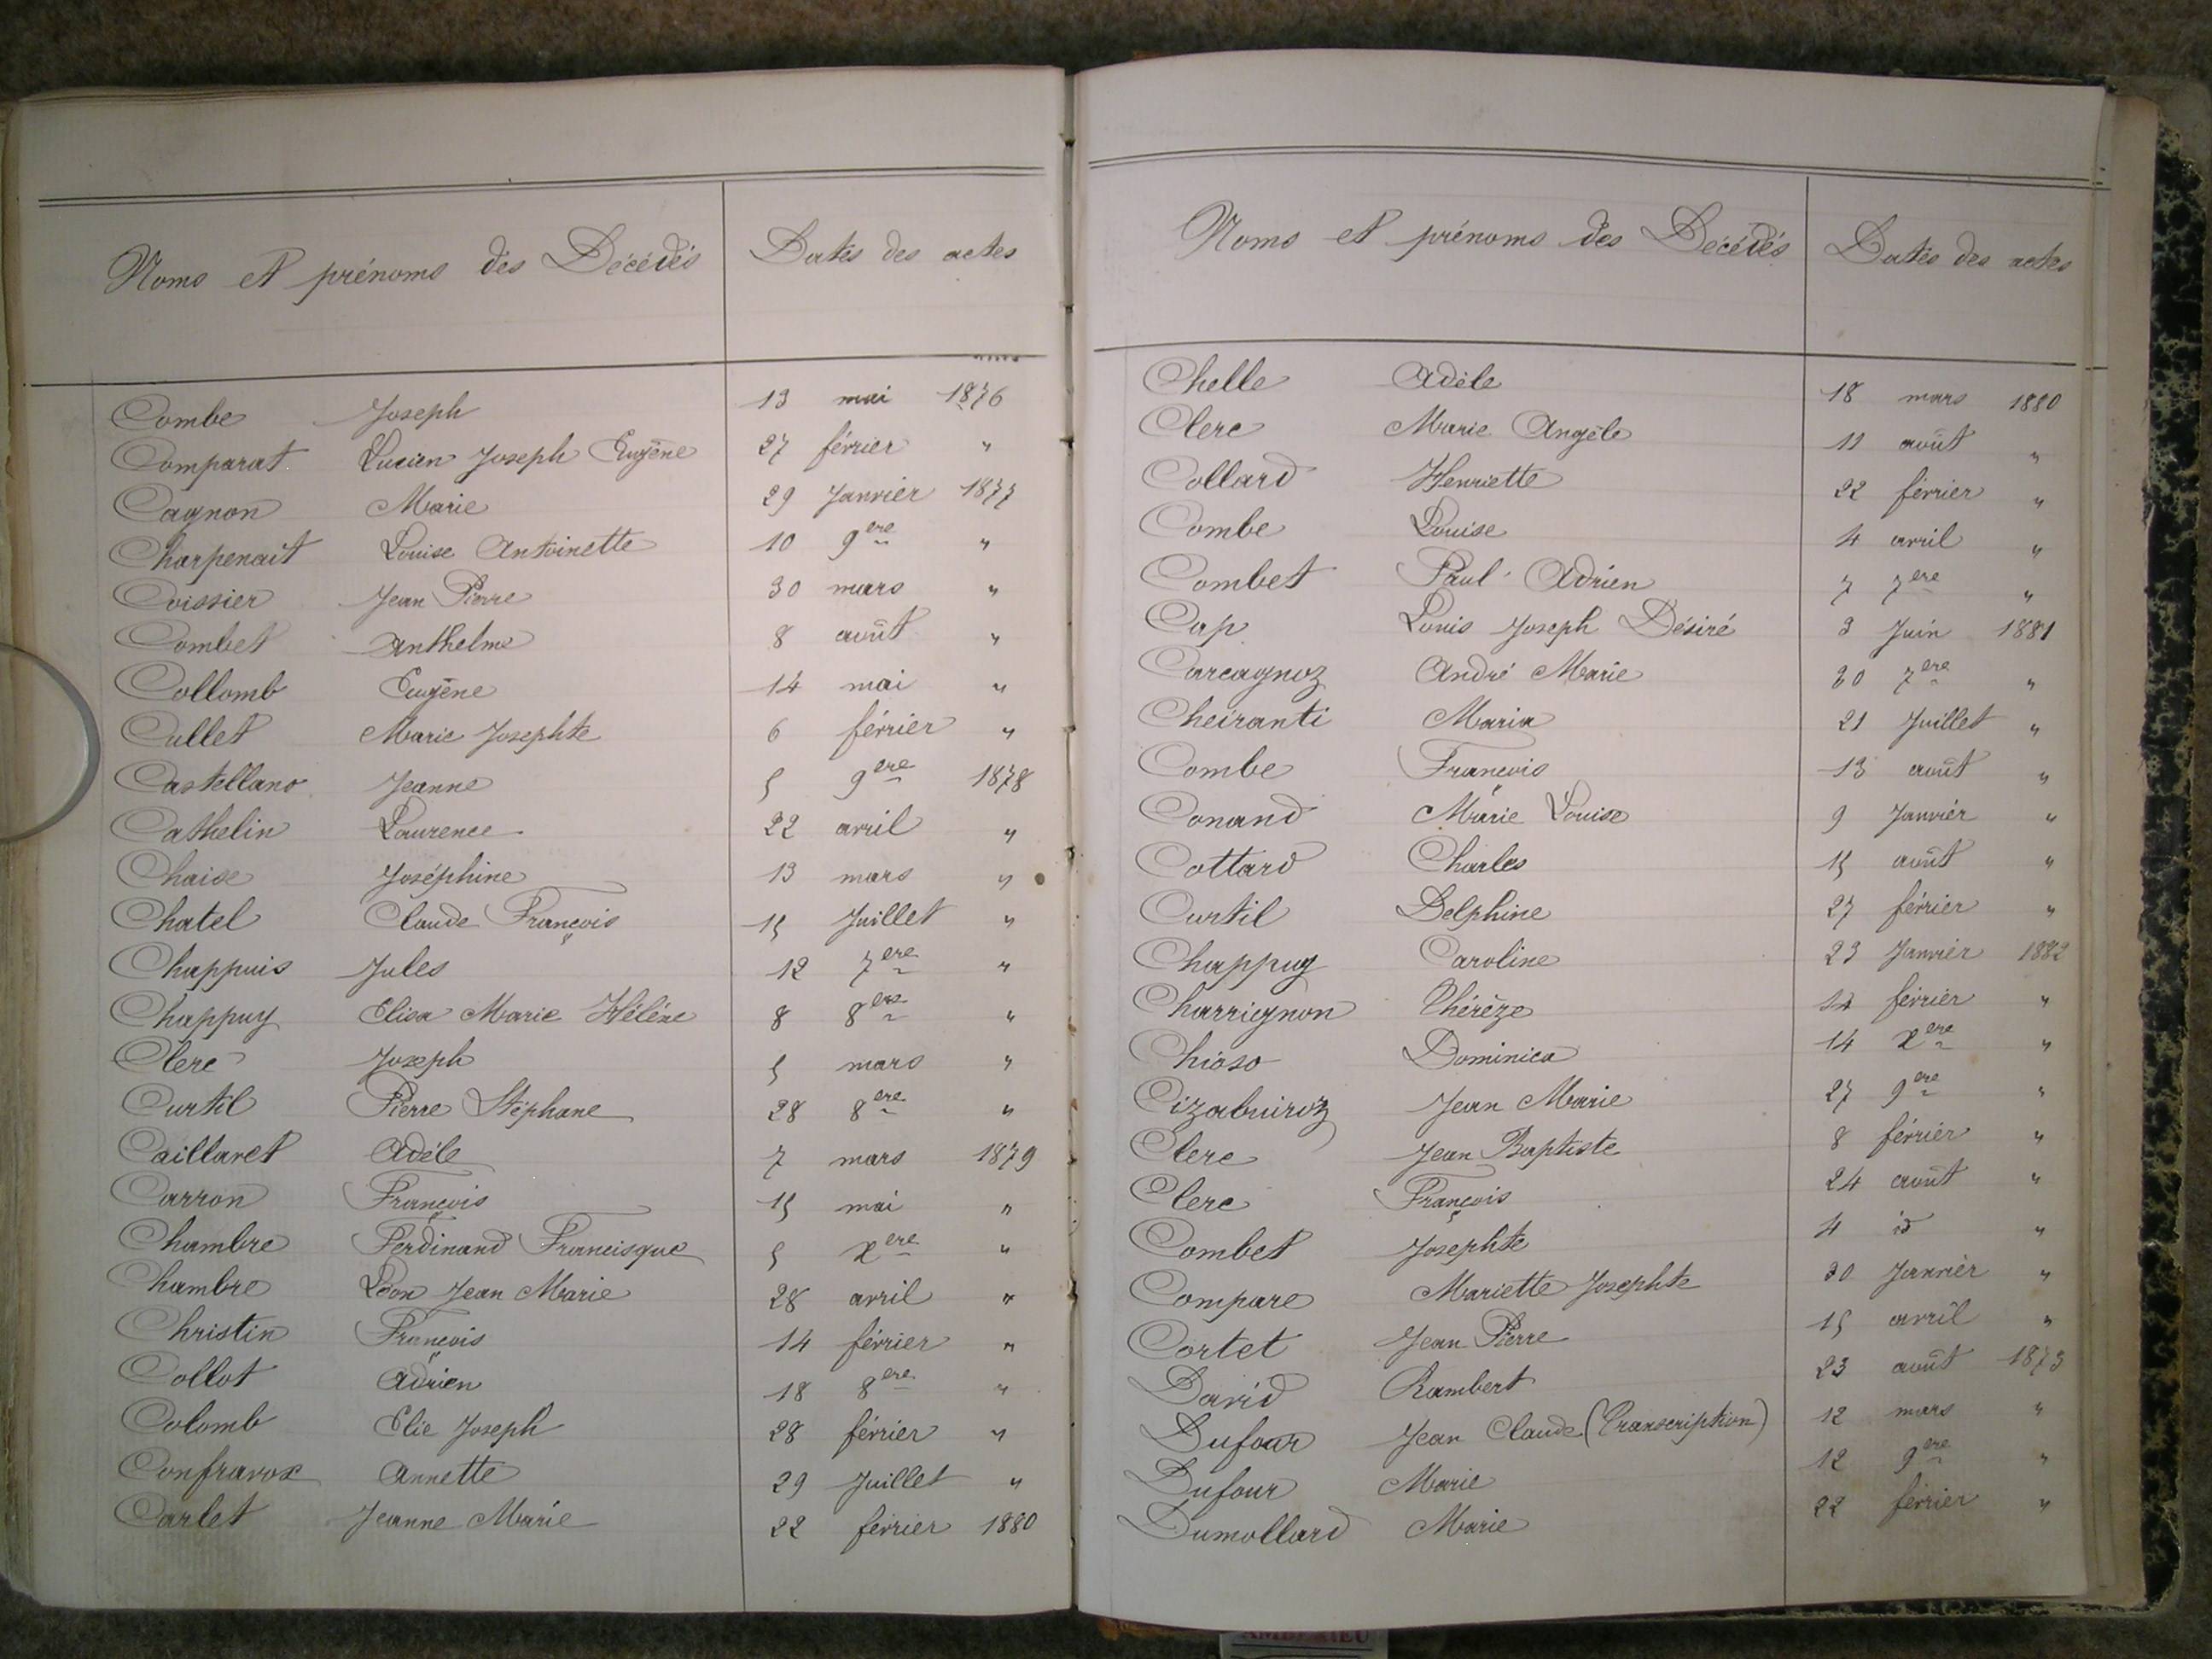 Noms et prénoms des Décédés Dates des actes
Combe Joseph 13 mai 1876
Comparat Lucien Joseph Eugène 27 février "
Cagnon Marie 29 Janvier 1877
Charpenait Louise Antoinette 10 9ere "
Coissier Jean Pierre 30 mars "
Combet Anthelme 8 août "
Collomb Eugène 14 mai "
Cullet Marie Josephte 6 février "
Castellano Jeanne 5 9ere 1878
Cathelin Laurence 22 avril "
Chaise Joséphine 13 mars "
Chatel Claude François 15 Juillet "
Chappuis Jules 12 7ere "
Chappuy Elisa Marie Hélène 8 8ere "
Clerc Joseph 5 mars "
Curtil Pierre Stéphane 28 8ere "
Caillaret Adèle 7 mars 1879
Carron François 15 mai "
Chambre Ferdinand Francisque 5 Xere "
Chambre Léon Jean Marie 28 avril "
Christin François 14 février "
Collot Adrien 18 8ere "
Colomb Elie Joseph 28 février "
Confravox Annette 29 Juillet "
Carlet Jeanne Marie 22 février 1880
Noms et prénoms des Décédés Dates des actes
Chelle Adèle 18 mars 1880
Clerc Marie Angèle 11 août "
Collard Henriette 22 février "
Combe Louise 4 avril "
Combet Paul Adrien 7 7ere "
Cap Louis Joseph Désiré 3 Juin 1881
Carcagnoz André Marie 30 7ere "
Cheiranti Maria 21 Juillet "
Combe François 13 août "
Conand Marie Louise 9 Janvier "
Cottard Charles 15 août "
Curtil Delphine 27 février "
Chappuy Caroline 23 Janvier 1882
Charrignon Thérèze février "
Chioso Dominica 14 Xere "
Cizabuiroz Jean Marie 27 9ere "
Clerc Jean Baptiste 8 février "
Clerc François 24 août "
Combet Josephte 4 id "
Compare Mariette Josephte 30 Janvier "
Cortet Jean Pierre 15 avril "
David Rambert 23 août 1873
Dufour Jean Claude (Transcription) 12 mars "
Dufour Marie 12 9ere "
Dumollard Marie 22 février "
AMBERIEU